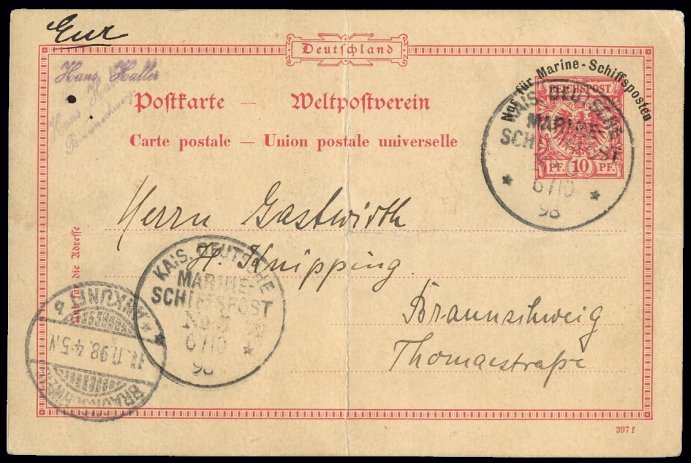 Eur
Deutschland
Hans Haller
Hans
Nur für Marine-Schiffsposten
REICHSPOST
PF. 10 PF.
Postkarte — Weltpostverein
Carte postale — Union postale universelle
KAIS. DEUTSCHE
MARINE-
6/10
98
Herrn Gastwirth
H. Knipping.
Braunschweig
Thomaestraße
Nur für die Adresse
KAIS. DEUTSCHE
MARINE-
SCHIFFSPOST
No 5
6/10
98
ANKUNFT
11.11.98. 4-5.N
BRAUNSCHWEIG
397f